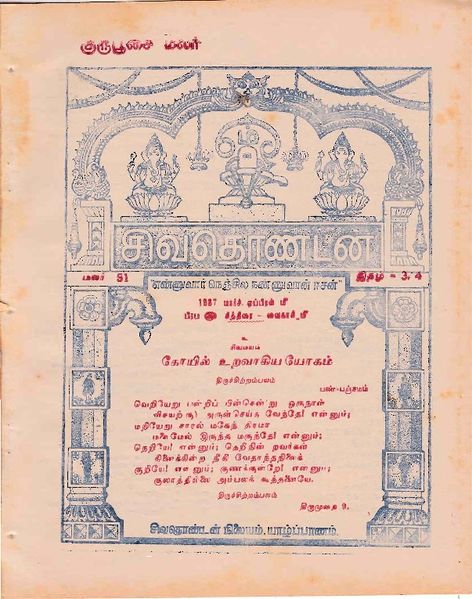 குருபூசை மலர்
சிவதொண்டன்
மலர் 51
இதழ் - 3, 4
"எண்ணுவார் நெஞ்சில் நண்ணுவான் ஈசன்"
1987 மார்ச், ஏப்பிரல் மீ
பிரப சித்திரை - வைகாசி மீ
உ
சிவமயம்
கோயில் உறவாகிய யோகம்
திருச்சிற்றம்பலம்
பண்-பஞ்சமம்
வெறியேறு பன்றிப் பின்சென்று ஒருநாள்
விசயற்கு அருள்செய்த வேந்தே! என்னும்;
மறியேறு சாரல் மகேந்திரமா
மலைமேல் இருந்த மருந்தே! என்னும்;
நெறியே! என்னும்; நெறிநின் றவர்கள்
நினைக்கின்ற நீதி வேதாந்தநிலைக்
குறியே! என்னும்; குணக்குன்றே! என்னும்;
குலாத்தில்லை அம்பலக் கூத்தனையே.
திருச்சிற்றம்பலம்
திருமுறை 9.
சிவதொண்டன் நிலையம், யாழ்ப்பாணம்.